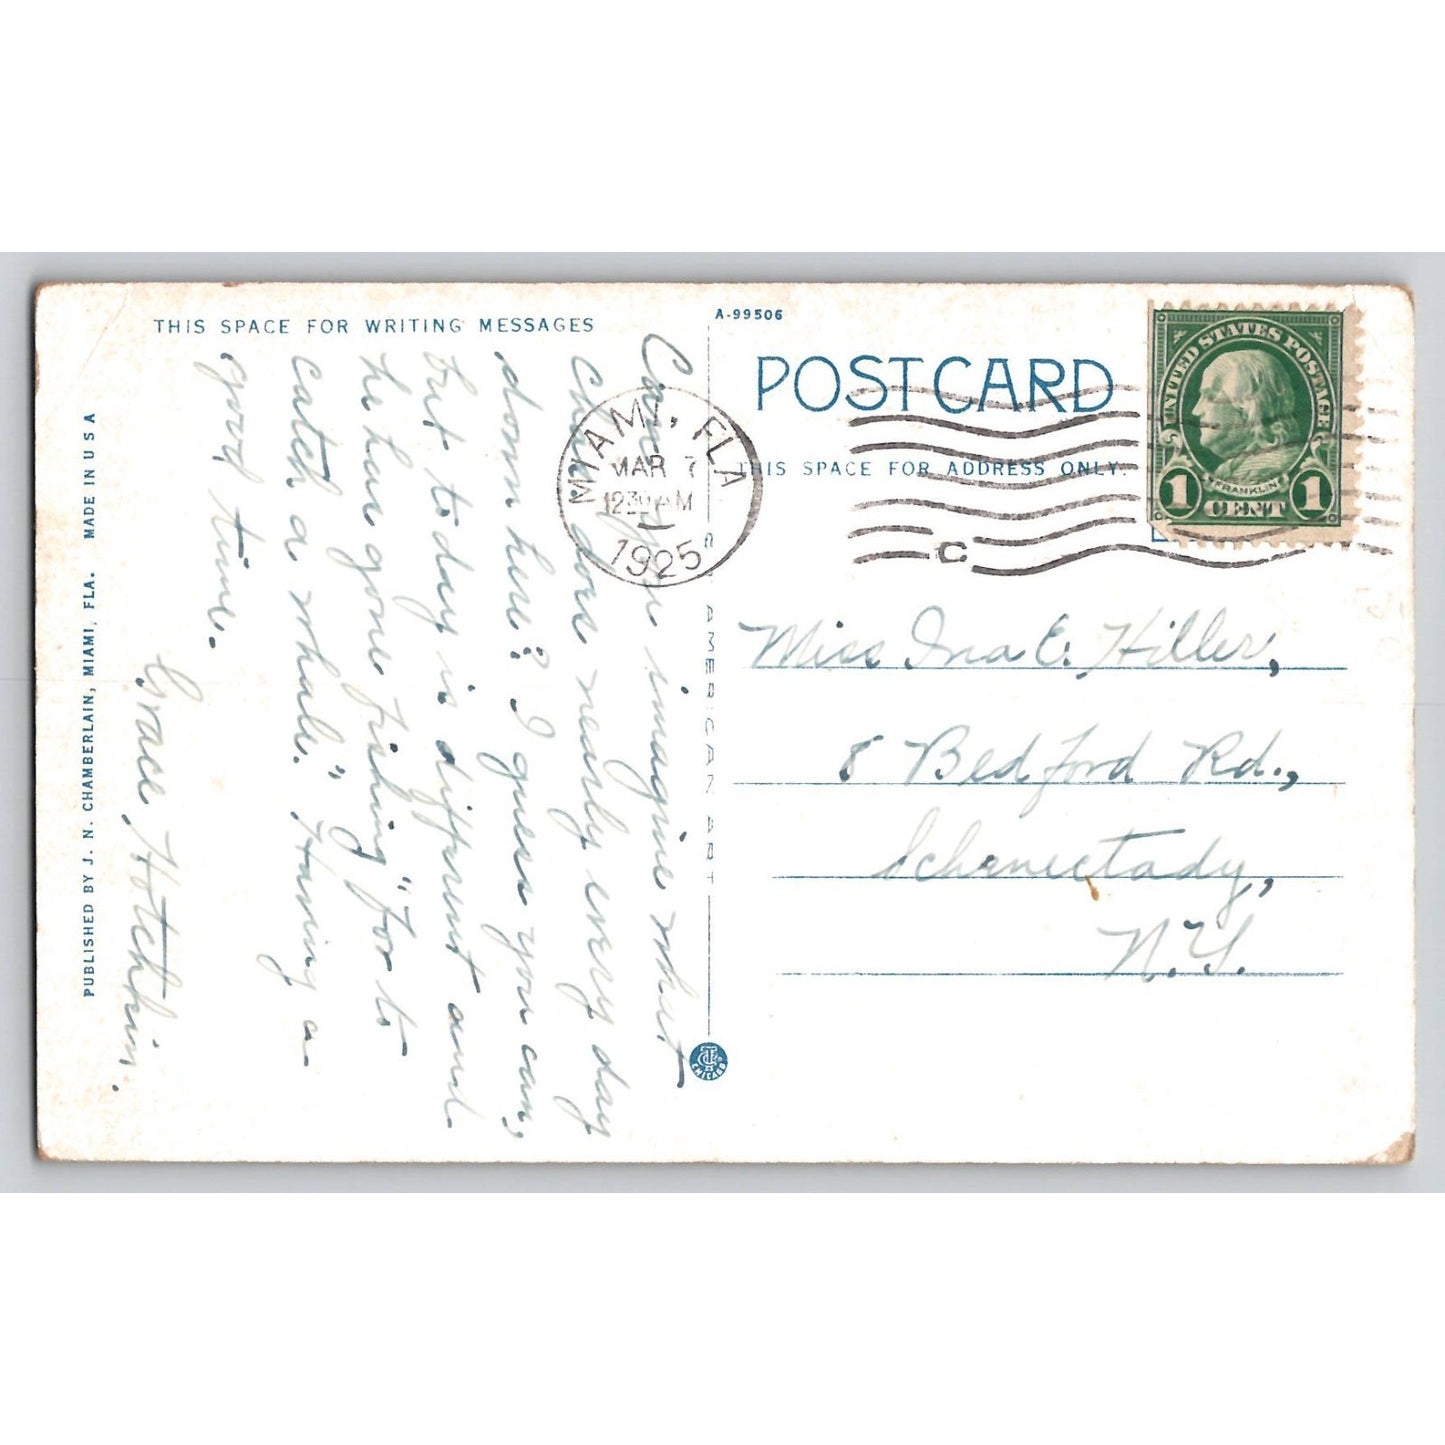 THIS SPACE FOR WRITING MESSAGES
Can you imagine what
Carl does nearly every day
down here? I guess you can,
but to-day is different and
he has gone fishing "for to
catch a whale." Having a
good time.
Grace Hotchkin.
PUBLISHED BY J. N. CHAMBERLAIN, MIAMI, FLA. MADE IN U S A
A-99506
POST CARD
THIS SPACE FOR ADDRESS ONLY.
MIAMI, FLA
MAR 7
1230 AM
1925
C.
UNITED STATES POSTAGE
FRANKLIN
1 CENT 1
AMERICAN ART
CHICAGO
Miss Ina E. Hiller,
8 Bedford Rd.,
Schenectady,
N.Y.